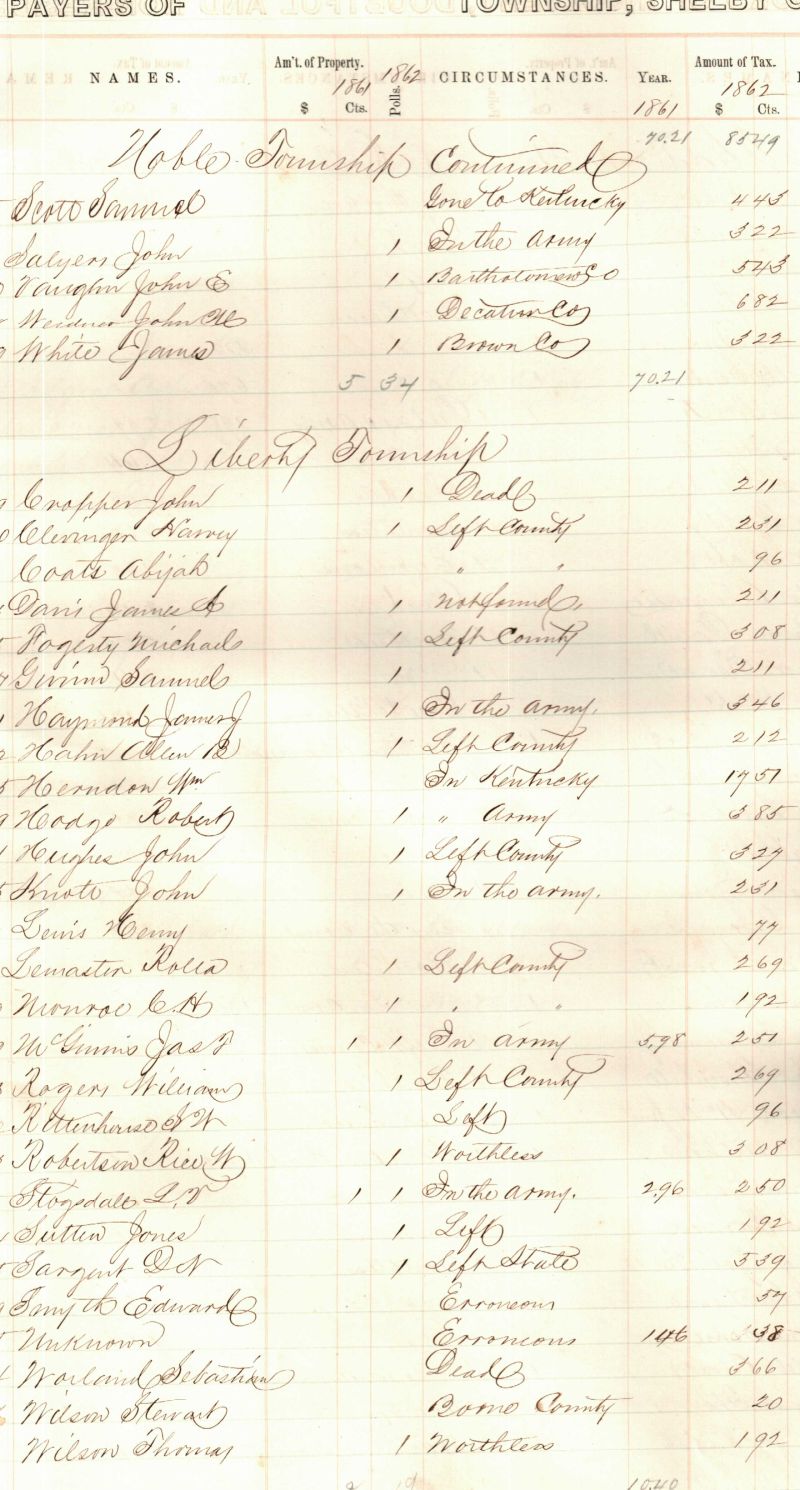 PAYERS OF TOWNSHIP, SHELBY
NAMES. Am't. of Property. 1861 $ Cts. Polls. 1862 CIRCUMSTANCES. YEAR. 1861 Amount of Tax. 1862 $ Cts.
Noble Township Continued 70.21 8549
Scott Samuel Gone to Kentucky 443
Salyers John 1 In the Army 322
Vaughn John E 1 Bartholomew Co 543
Weidner John 1 Decatur Co 682
White James 1 Brown Co 322
5 34 70.21
Liberty Township
Cropper John 1 Dead 211
Clevinger Harvey 1 Left County 231
Coats Abijah " " 96
Davis James A 1 not found. 211
Fogerty Michael 1 Left County 308
Samuel 1 211
Haymond James J 1 In the army. 346
Hahn Allen B 1 Left County 212
Herndon Wm In Kentucky 1751
Hodge Robert 1 " Army 385
Hughes John 1 Left County 327
Knote John 1 In the army. 231
Lewis Henry 77
Lemaster Rolla 1 Left County 269
Monroe C. H 1 " " 192
McGinnis Jas F 1 1 In army 5.98 251
Rogers William 1 Left County 269
Rittenhouse S W Left 96
Robertson Rice W 1 Worthless 308
Stogsdale L. V 1 1 In the army. 2.96 250
Sutten Jones 1 Left 192
Sargent D N 1 Left State 539
Smyth Edward Erroneous 57
Unknown Erroneous 146 38
Worland Sebastian Dead 366
Wilson Stewart Boone County 20
Wilson Thomas 1 Worthless 192
10.40